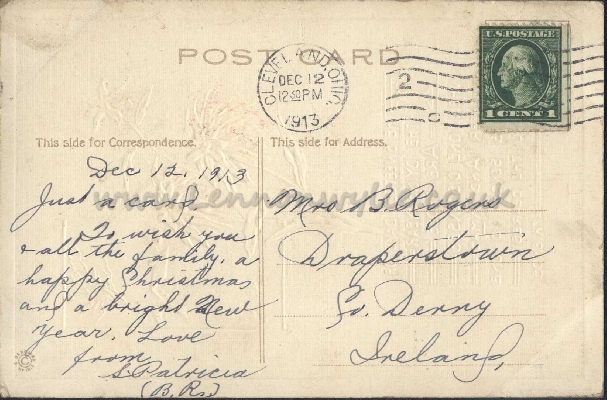 POST CARD
CLEVELAND, OHIO
DEC 12
12-30PM
1913
2
U.S. POSTAGE
1 CENT 1
This side for Correspondence.
This side for Address.
Dec 12, 1913
Just a card
To wish you
& all the family, a
happy Christmas
and a bright New
Year. Love
from
S. Patricia
(B. Rs.)
Mrs B. Rogers
Draperstown
Co. Derry
Ireland,